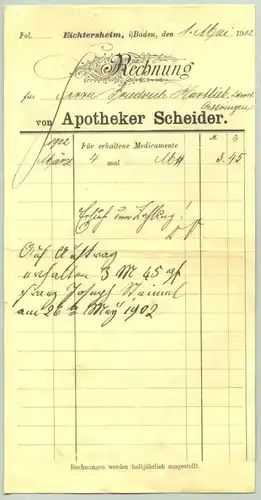 Fol. Eichtersheim, i/Baden, den 1. Mai 1902
Rechnung
für Herrn Friedrich
von Apotheker Scheider.
1902 Für erhaltene Medicamente M. ₰
März 4 mal M 3.45
Ersuche um Zahlung!
Auf Auftrag
erhalten 3 M 45 pf
Franz Joseph
am 26 May 1902
Rechnungen werden halbjährlich ausgestellt.